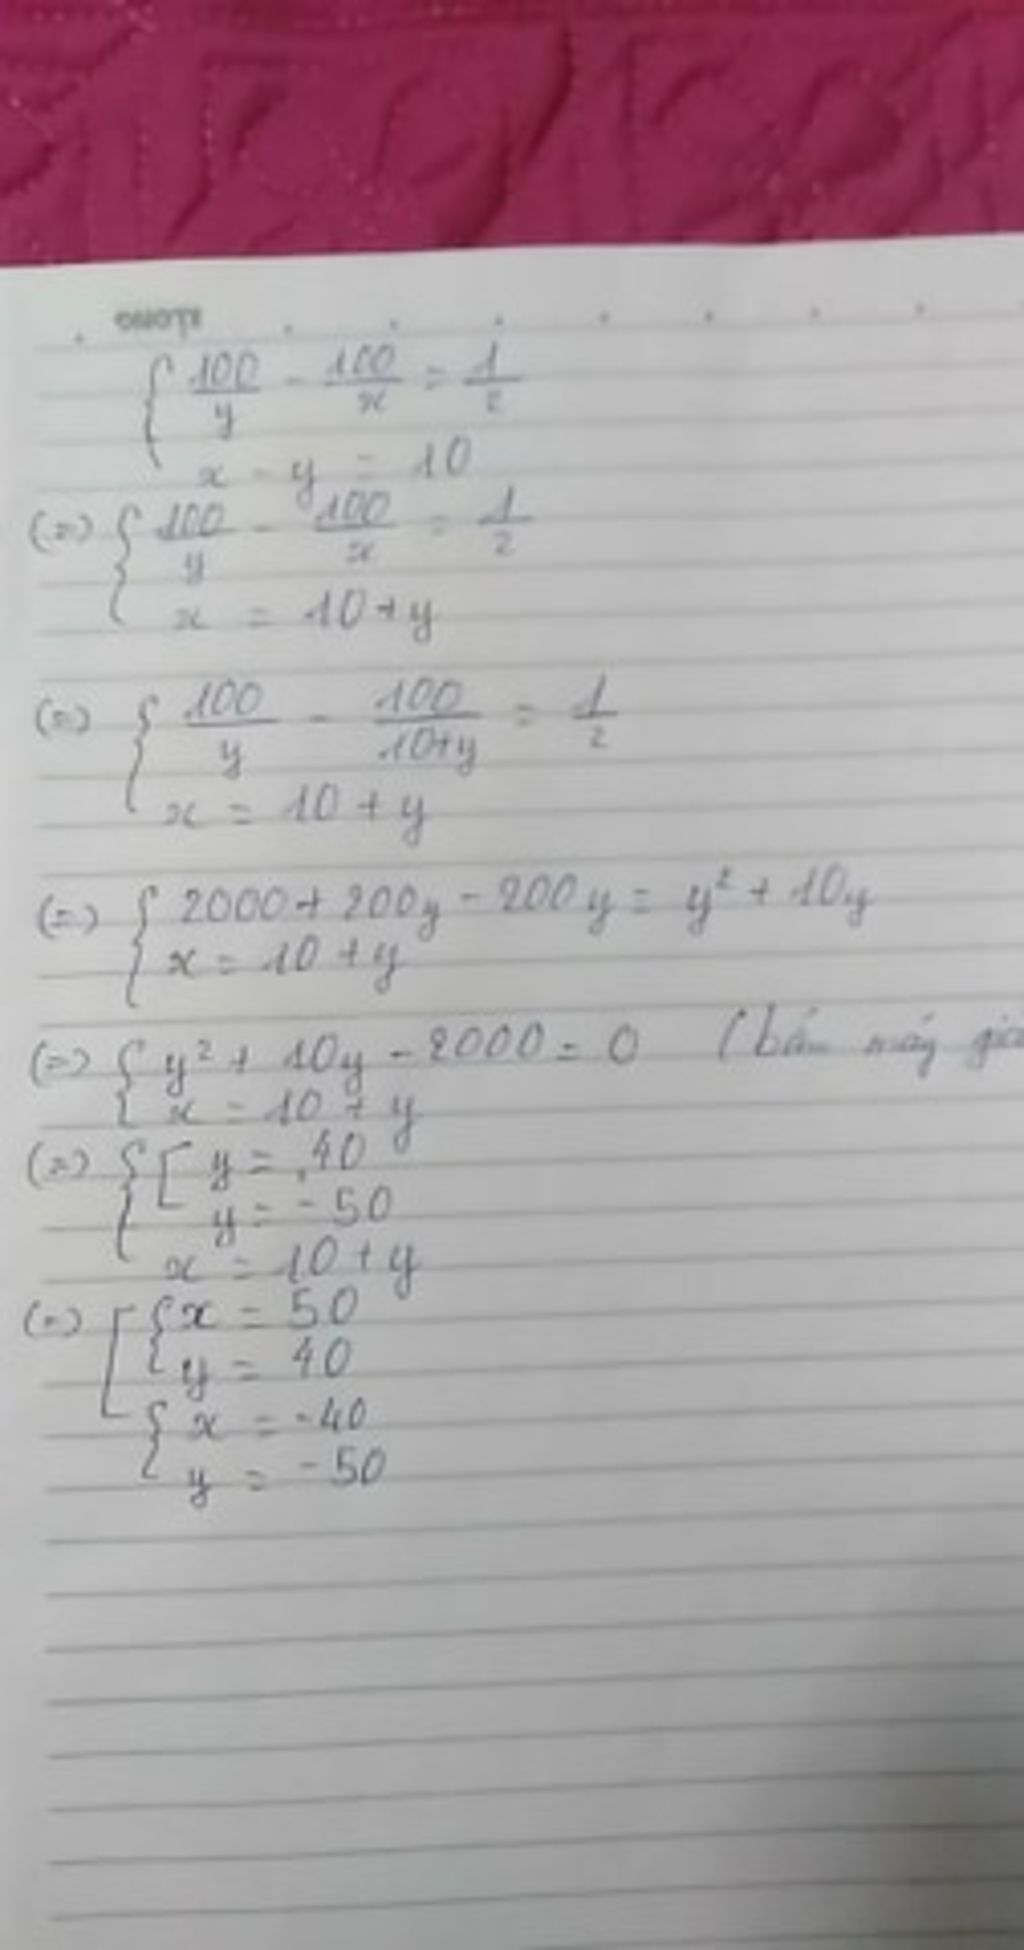 { 100/y - 100/x = 1/2
x - y = 10
(=) { 100/y - 100/x = 1/2
x = 10 + y
(=) { 100/y - 100/10+y = 1/2
x = 10 + y
(=) { 2000 + 200y - 200y = y² + 10y
x = 10 + y
(=) { y² + 10y - 2000 = 0 (bấm máy
x = 10 + y
(=) { [ y = 40
y = -50
x = 10 + y
(=) [ { x = 50
y = 40
{ x = -40
y = -50